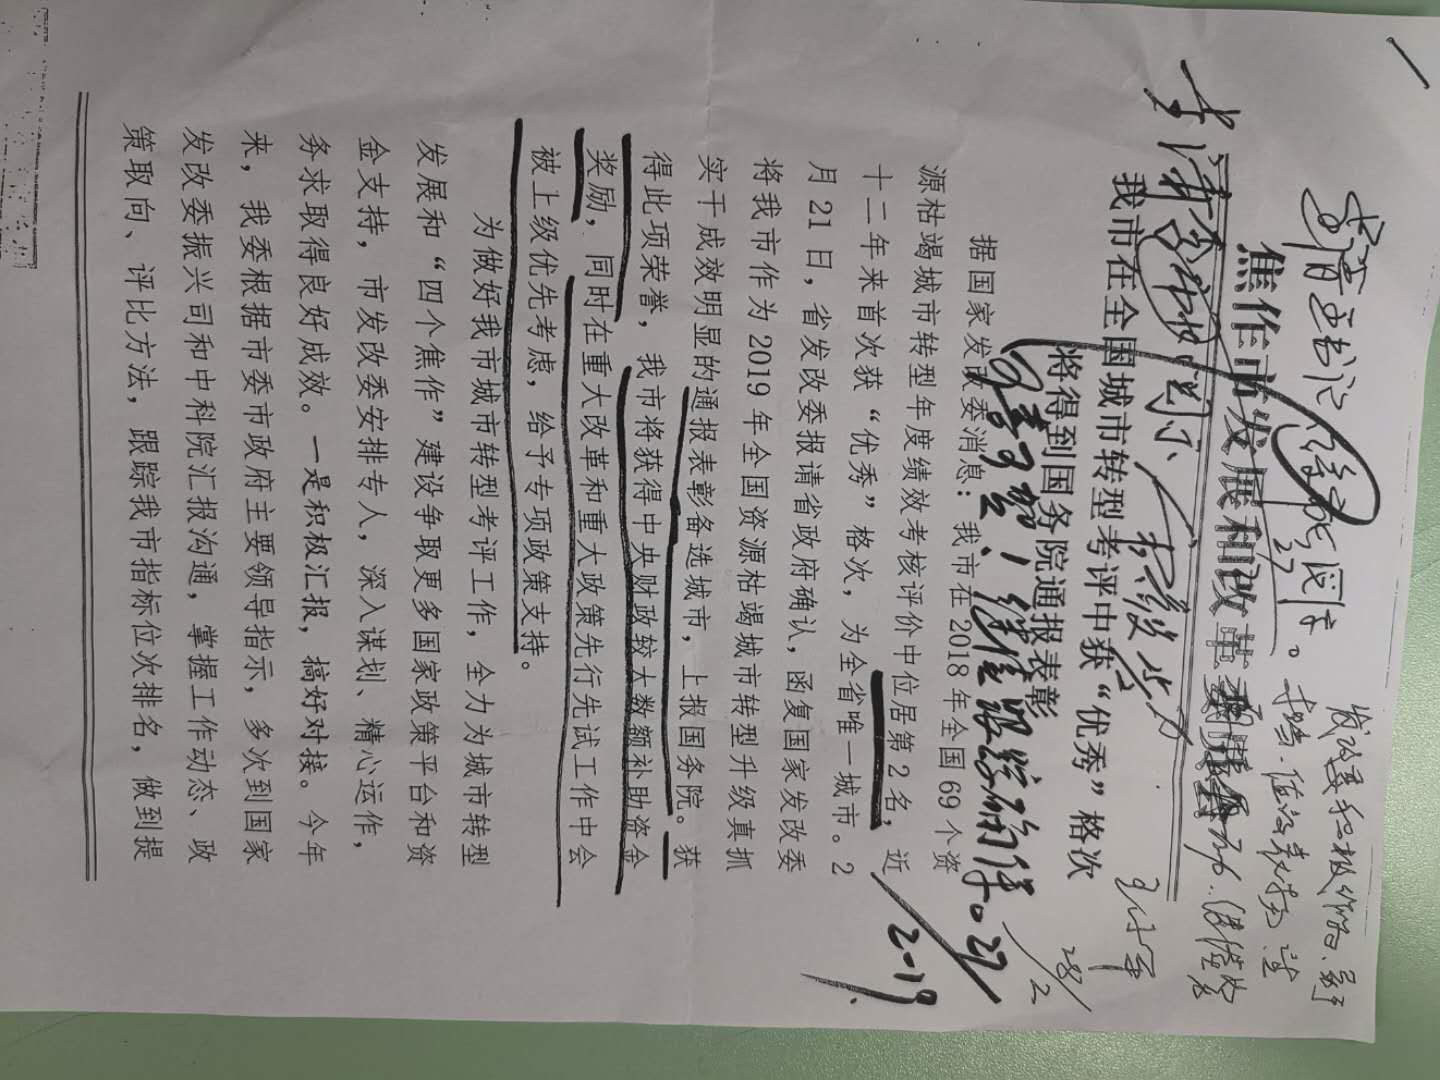 焦作市发展和改革委员会
我市在全国城市转型考评中获“优秀”格次
将得到国务院通报表彰
据国家发改委消息：我市在2018年全国69个资
源枯竭城市转型年度绩效考核评价中位居第2名，近
十二年来首次获“优秀”格次，为全省唯一城市。2
月21日，省发改委报请省政府确认，函复国家发改委
将我市作为2019年全国资源枯竭城市转型升级真抓
实干成效明显的通报表彰备选城市，上报国务院。获
得此项荣誉，我市将获得中央财政较大数额补助资金
奖励，同时在重大改革和重大政策先行先试工作中会
被上级优先考虑，给予专项政策支持。
为做好我市城市转型考评工作，全力为城市转型
发展和“四个焦作”建设争取更多国家政策平台和资
金支持，市发改委安排专人，深入谋划、精心运作，
务求取得良好成效。一是积极汇报，搞好对接。今年
来，我委根据市委市政府主要领导指示，多次到国家
发改委振兴司和中科院汇报沟通，掌握工作动态、政
策取向、评比方法，跟踪我市指标位次排名，做到提